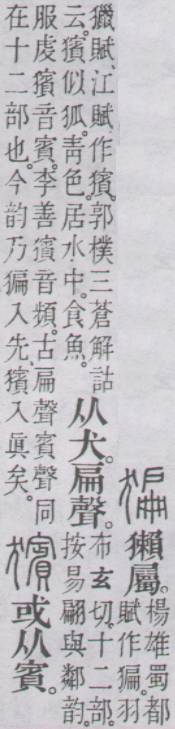 猵獺屬。楊雄蜀都
賦作猵。羽
獵賦、江賦、作獱。郭樸三蒼解詁
云。獱似狐。靑色。居水中。食魚。
服虔獱音賓。李善獱音頻。古扁聲賓聲同
在十二部也。今韵乃猵入先、獱入眞矣。
从犬。扁聲。布玄切。十二部。
按易翩與鄰韵。
獱或从賓。